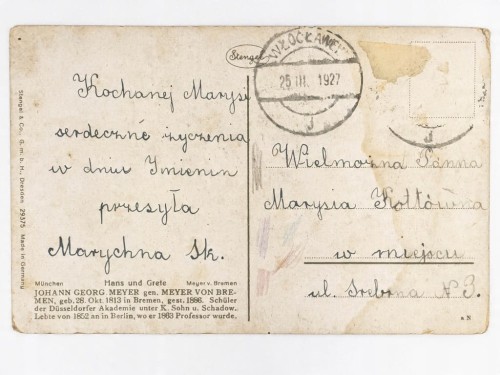 Stengel
WŁOCŁAWEK
25 III. 1927
J
Kochanej Marysi
serdeczne życzenia
w dniu Imienin
przesyła
Marychna Sk.
Wielmożna Panna
Marysia Kołtówna
w miejscu
ul. Srebrna N 3.
Stengel & Co., G. m. b. H., Dresden 29375 Made in Germany
München Hans und Grete Meyer v. Bremen
JOHANN GEORG MEYER gen. MEYER VON BRE-
MEN, geb. 28. Okt. 1813 in Bremen, gest. 1886. Schüler
der Düsseldorfer Akademie unter K. Sohn u. Schadow.
Lebte von 1852 an in Berlin, wo er 1863 Professor wurde.